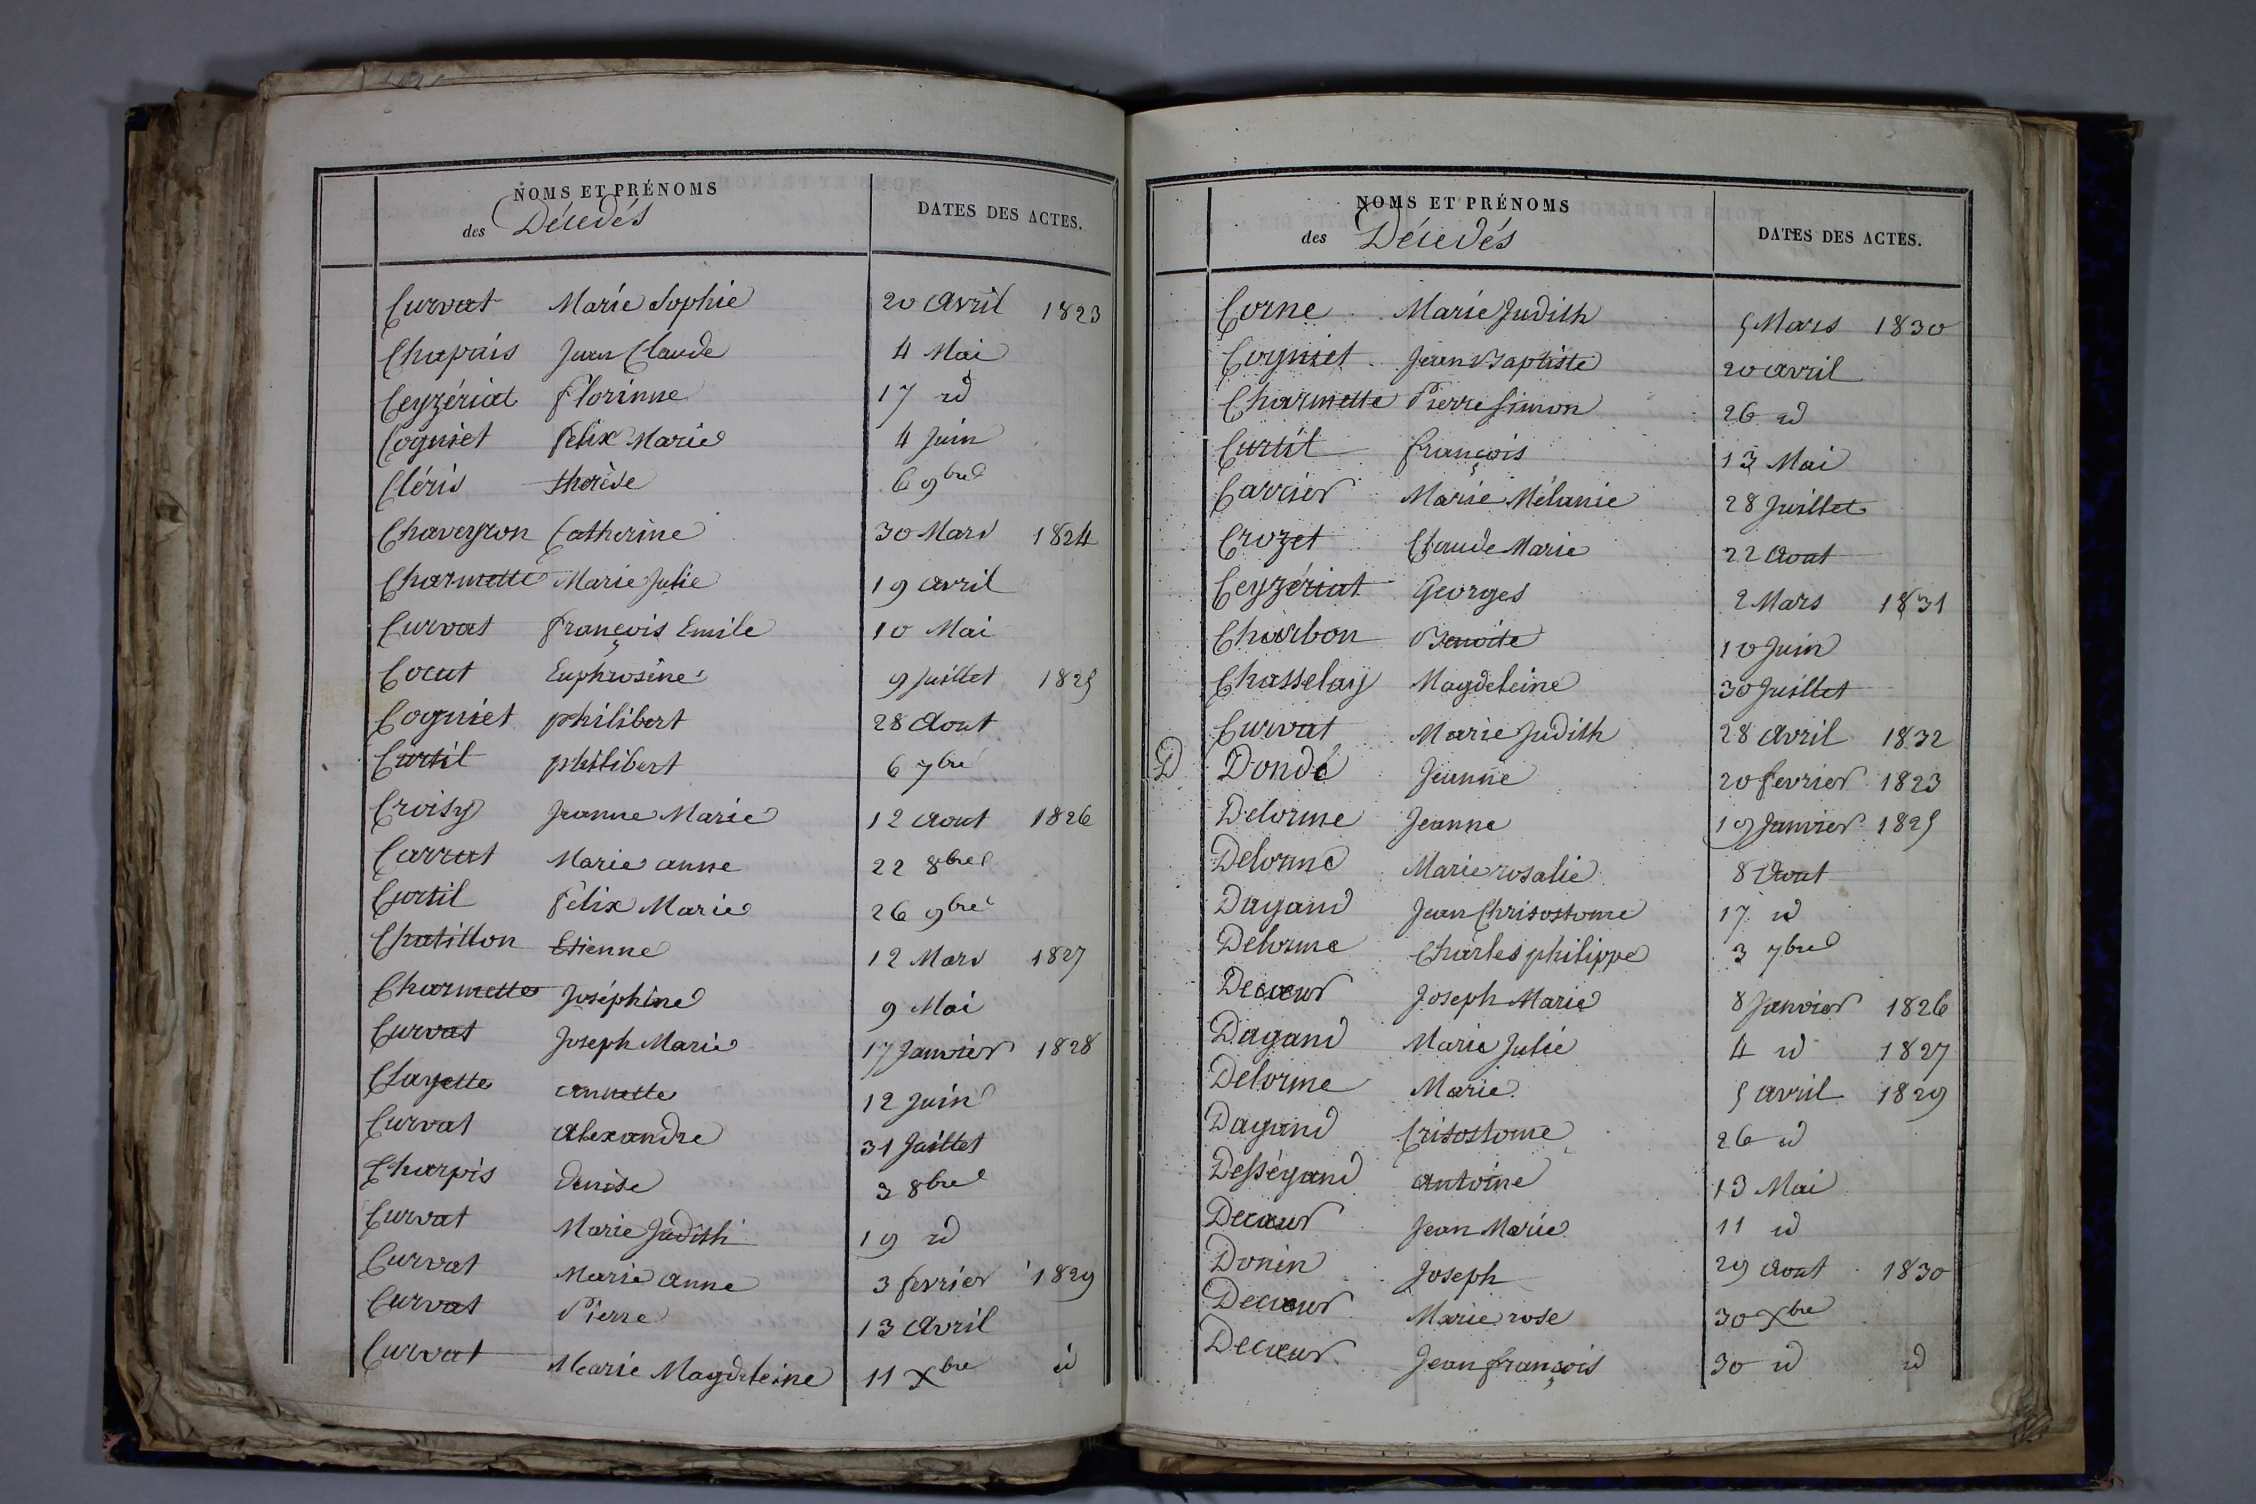 NOMS ET PRÉNOMS
des Décédés
DATES DES ACTES.
Curvat Marie Sophie 20 Avril 1823
Chapuis Jean Claude 4 Mai
Ceyzériat Florinne 17 id
Cogniet Felix Marie 4 Juin
Cléris therèse 6 9bre
Chaveyron Catherine 30 Mars 1824
Charmette Marie Julie 19 avril
Curvat François Emile 10 Mai
Cocut Euphrosine 9 Juillet 1825
Cogniet philibert 28 Aout
Curtil philibert 6 7bre
Croisy Jeanne Marie 12 Aout 1826
Carrat Marie anne 22 8bre
Curtil Félix Marie 26 9bre
Chatillon Etienne 12 Mars 1827
Charmette Joséphine 9 Mai
Curvat Joseph Marie 17 Janvier 1828
Clayette annette 12 Juin
Curvat Alexandre 31 Juillet
Charpis denise 3 8bre
Curvat Marie Judith 19 id
Curvat Marie anne 3 fevrier 1829
Curvat Pierre 13 Avril
Curvat Marie Magdeleine 11 Xbre id
NOMS ET PRÉNOMS
des Décédés
DATES DES ACTES.
Corne Marie Judith 5 Mars 1830
Cogniet Jean Baptiste 20 avril
Charmette Pierre Simon 26 id
Curtil François 13 Mai
Carrier Marie Mélanie 28 Juillet
Crozet Claude Marie 22 Aout
Ceyzériat Georges 2 Mars 1831
Charbon Benoite 10 Juin
Chasselay Magdeleine 30 Juillet
Curvat Marie Judith 28 Avril 1832
D Dondé Jeanne 20 fevrier 1823
Delorme Jeanne 19 Janvier 1825
Delorme Marie rosalie 8 Aout
Dagand Jean Chrisostome 17 id
Delorme Charles philippe 3 7bre
Decœur Joseph Marie 8 Janvier 1826
Dagand Marie Julie 4 id 1827
Delorme Marie 5 avril 1829
Dagand Crisostome 26 id
Dességand Antoine 13 Mai
Decœur Jean Marie 11 id
Donin Joseph 29 Aout 1830
Decœur Marie rose 30 Xbre
Decœur Jean françois 30 id id